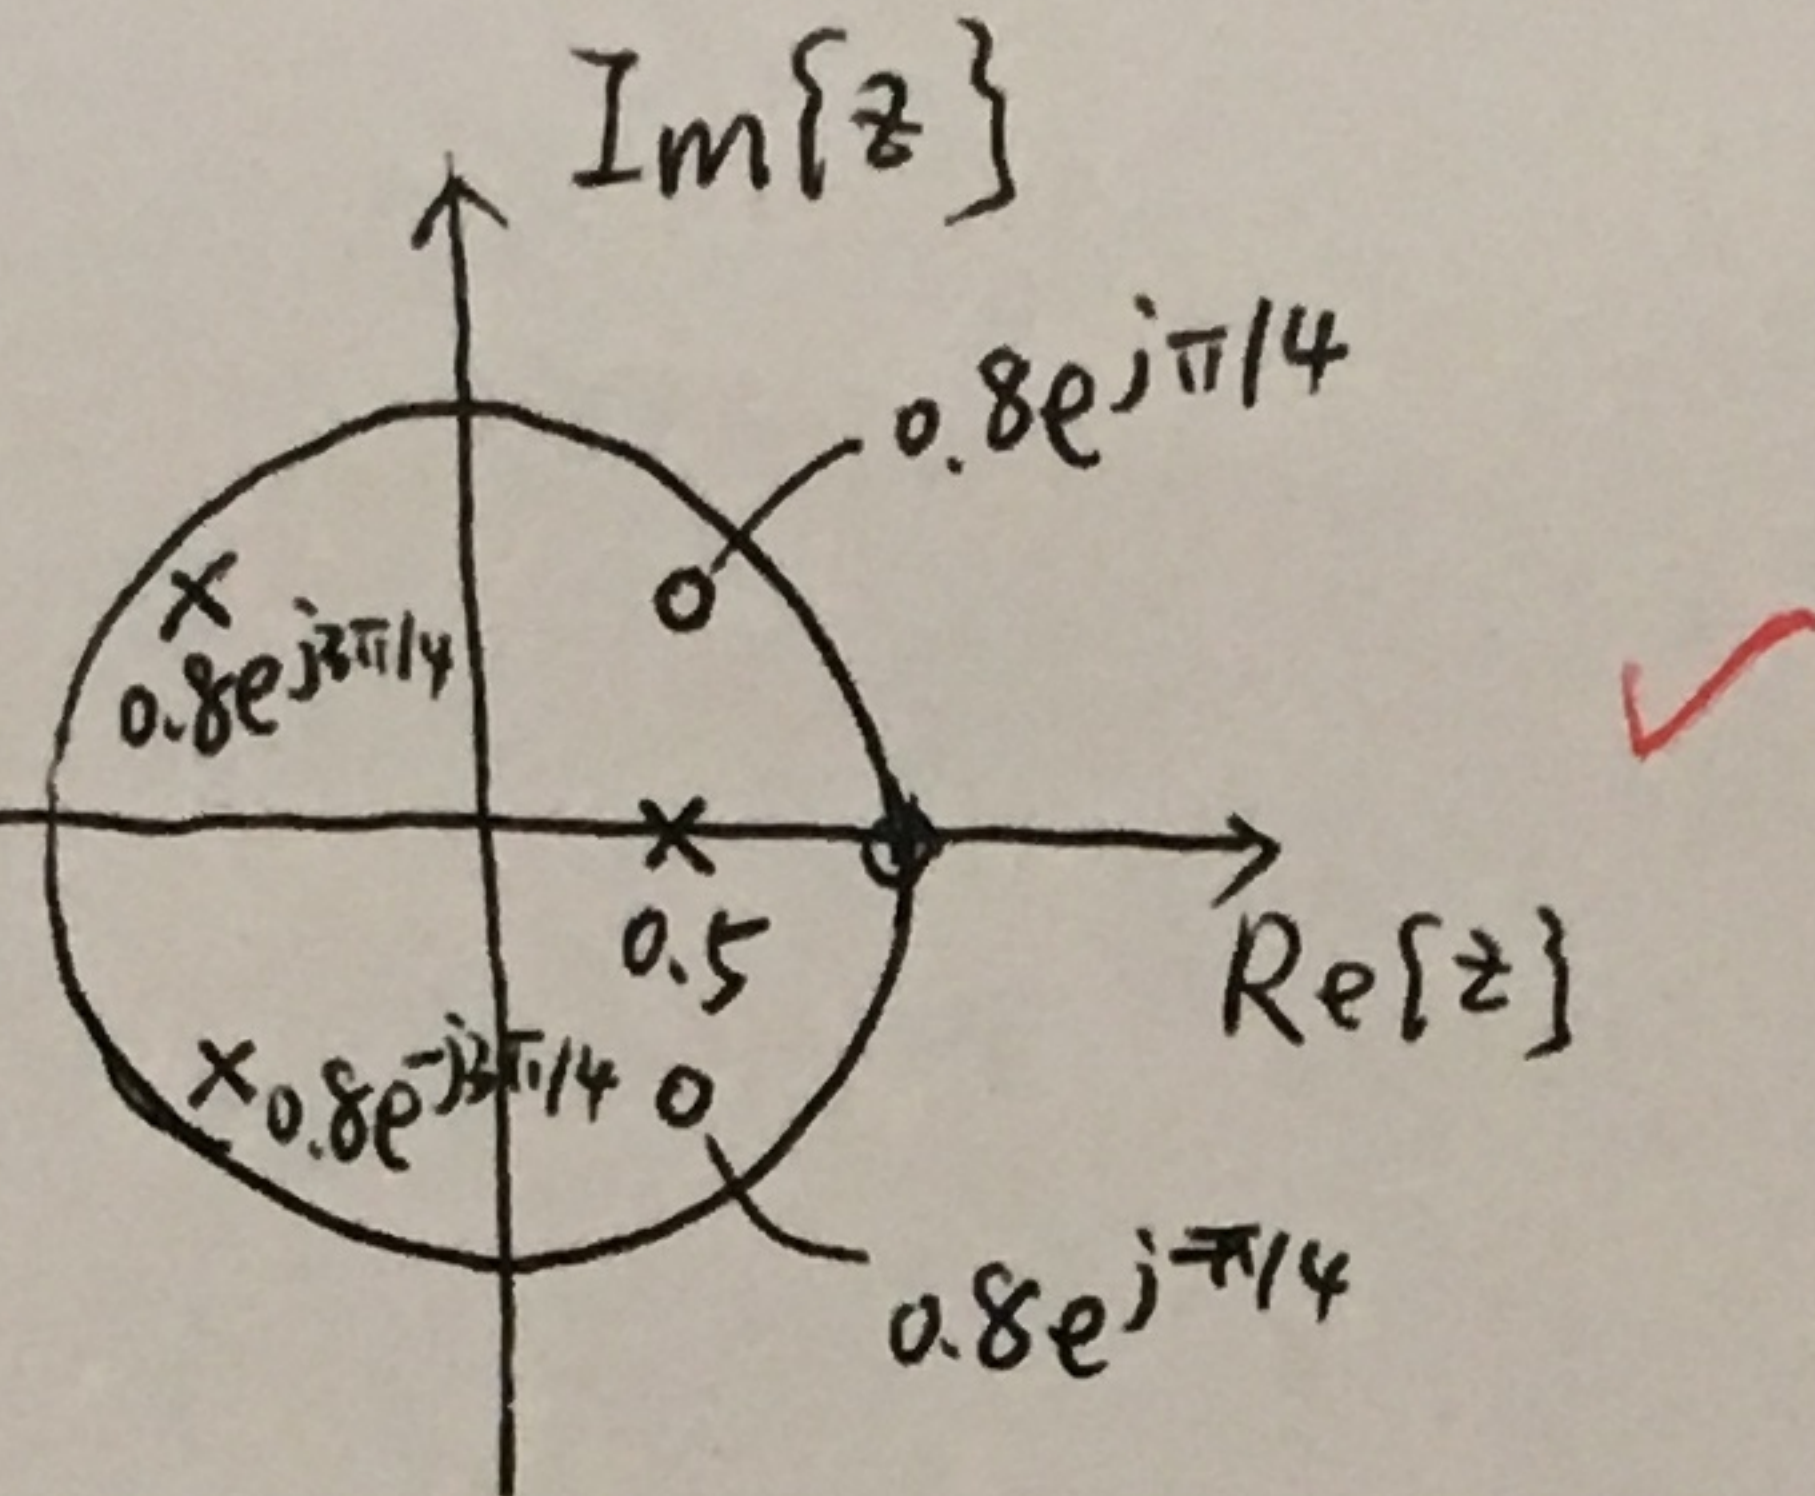 Im{z}
0.8e^{jπ/4}
0.8e^{j3π/4}
0.5
Re{z}
0.8e^{-j3π/4}
0.8e^{j-π/4}